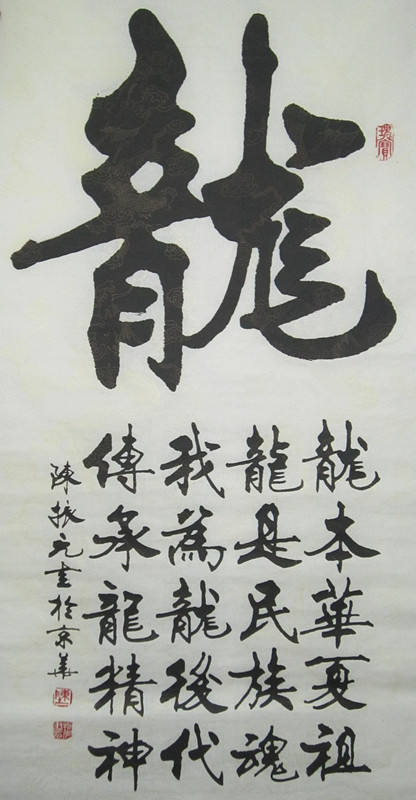 龍
龍本華夏祖
龍是民族魂
我為龍後代
傳承龍精神
陳振元書於京華